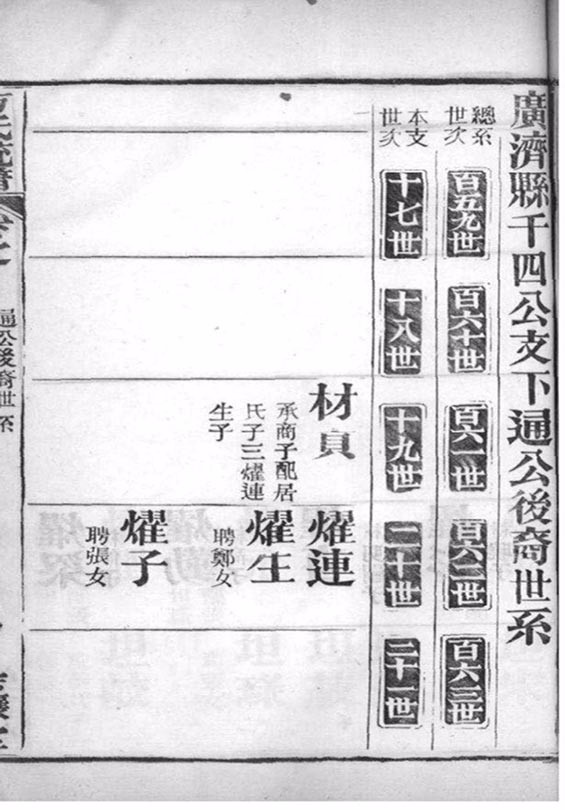 廣濟縣千四公支下通公後裔世系
總系世次
百五九世
百六十世
百六一世
百六二世
百六三世
本支世次
十七世
十八世
十九世
二十世
二十一世
材貞
承商子配居
氏子三燿連
生子
燿連
燿生
聘鄭女
燿子
聘張女
通公後裔世系